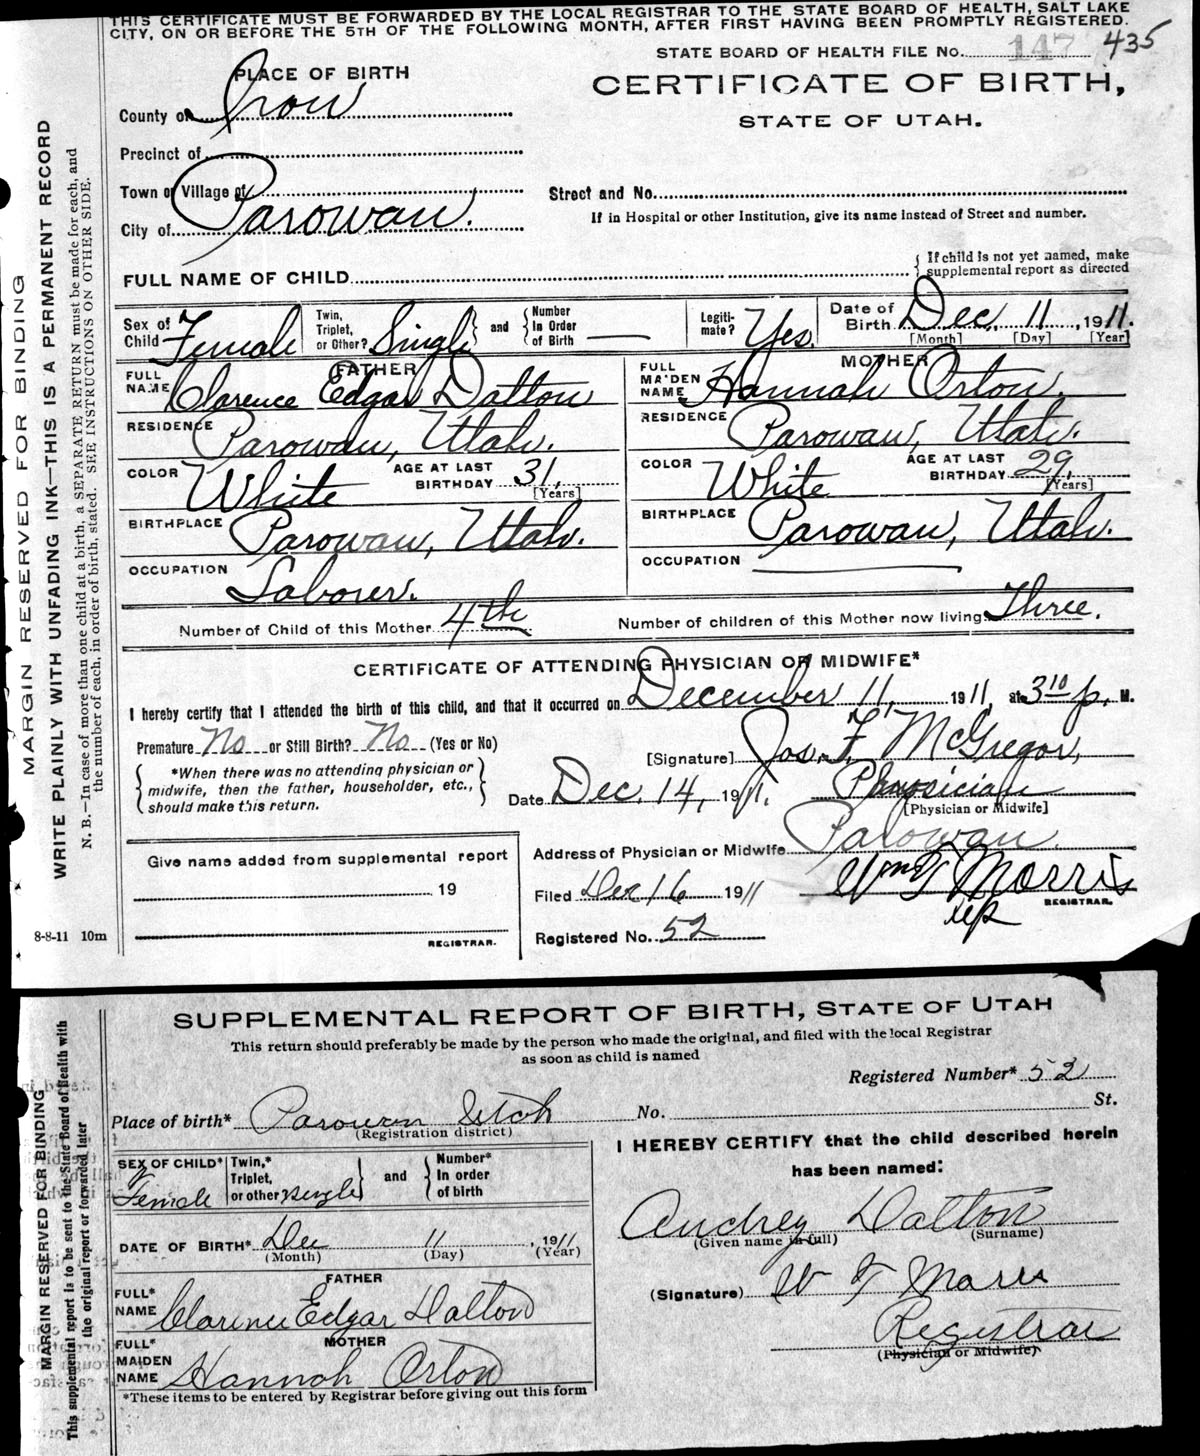 THIS CERTIFICATE MUST BE FORWARDED BY THE LOCAL REGISTRAR TO THE STATE BOARD OF HEALTH, SALT LAKE
CITY, ON OR BEFORE THE 5TH OF THE FOLLOWING MONTH, AFTER FIRST HAVING BEEN PROMPTLY REGISTERED.
STATE BOARD OF HEALTH FILE No. 147 435
PLACE OF BIRTH
CERTIFICATE OF BIRTH,
STATE OF UTAH.
County of Iron
Precinct of
Town or Village of
Street and No.
City of Parowan.
If in Hospital or other Institution, give its name instead of Street and number.
FULL NAME OF CHILD
If child is not yet named, make
supplemental report as directed
Sex of Child Female
Twin, Triplet, or Other? Single and Number In Order of Birth
Legiti-mate? Yes.
Date of Birth Dec. 11, 1911.
[Month] [Day] [Year]
FATHER
FULL NAME Clarence Edgar Dalton
RESIDENCE Parowan, Utah.
COLOR White AGE AT LAST BIRTHDAY 31,
[Years]
BIRTHPLACE Parowan, Utah.
OCCUPATION Laborer.
MOTHER
FULL MAIDEN NAME Hannah Orton.
RESIDENCE Parowan, Utah.
COLOR White AGE AT LAST BIRTHDAY 29,
[Years]
BIRTHPLACE Parowan, Utah.
OCCUPATION
Number of Child of this Mother 4th Number of children of this Mother now living Three.
CERTIFICATE OF ATTENDING PHYSICIAN OR MIDWIFE*
I hereby certify that I attended the birth of this child, and that it occurred on December 11, 1911, at 3 10 p. M.
Premature No or Still Birth? No (Yes or No)
*When there was no attending physician or
midwife, then the father, householder, etc.,
should make this return.
[Signature] Jos. F. McGregor,
Date Dec. 14, 1911. Physician
[Physician or Midwife]
Address of Physician or Midwife Parowan.
Filed Dec 16 1911 Wm T Morris
REGISTRAR.
Registered No. 52
Give name added from supplemental report
19
REGISTRAR.
8-8-11 10m
MARGIN RESERVED FOR BINDING
WRITE PLAINLY WITH UNFADING INK—THIS IS A PERMANENT RECORD
N. B.—In case of more than one child at a birth, a SEPARATE RETURN must be made for each, and
the number of each, in order of birth, stated. SEE INSTRUCTIONS ON OTHER SIDE.
SUPPLEMENTAL REPORT OF BIRTH, STATE OF UTAH
This return should preferably be made by the person who made the original, and filed with the local Registrar
as soon as child is named
Registered Number* 52
Place of birth* Parowan Utah No. St.
(Registration district)
SEX OF CHILD* Female
Twin,* Triplet, or other single and Number* In order of birth
DATE OF BIRTH* Dec 11, 1911
(Month) (Day) (Year)
FATHER
FULL* NAME Clarence Edgar Dalton
MOTHER
FULL* MAIDEN NAME Hannah Orton
*These items to be entered by Registrar before giving out this form
I HEREBY CERTIFY that the child described herein
has been named:
Audrey Dalton
(Given name in full) (Surname)
(Signature) W T Morris
Registrar
(Physician or Midwife)
MARGIN RESERVED FOR BINDING
This supplemental report is to be sent to the State Board of Health with
the original report or forwarded later